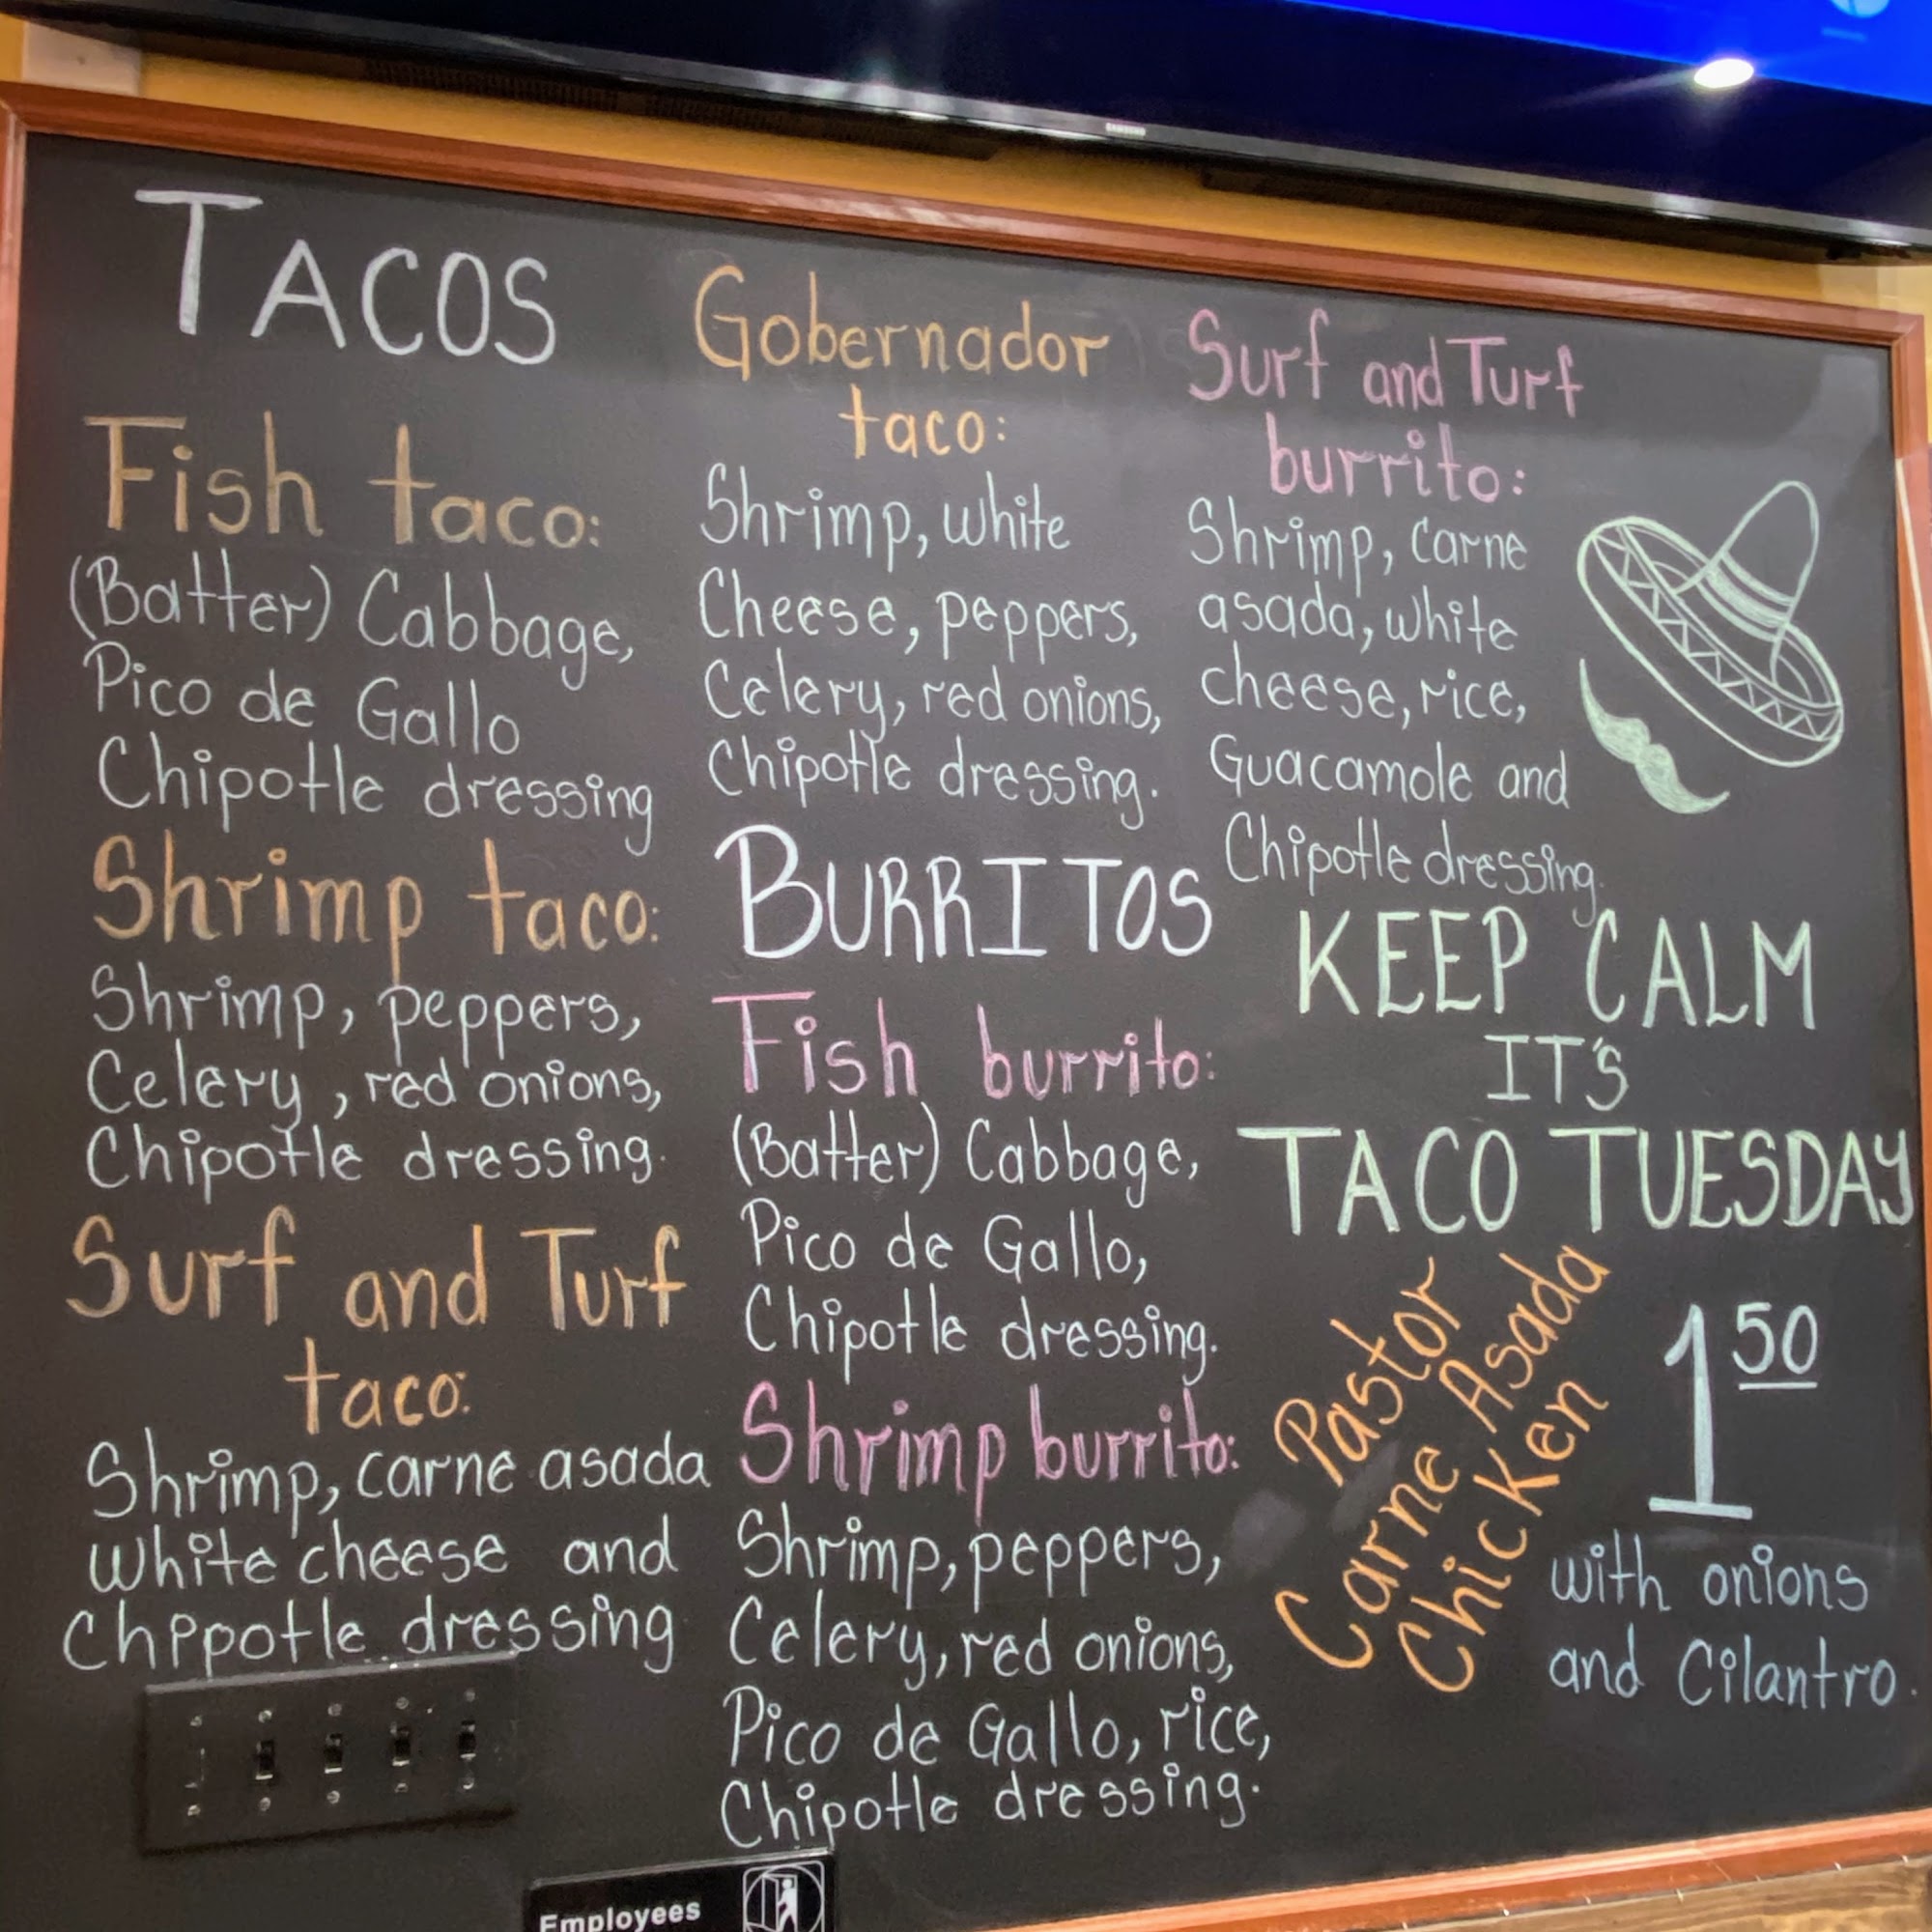 SAMSUNG
TACOS
Fish taco:
(Batter) Cabbage,
Pico de Gallo
Chipotle dressing
Shrimp taco:
Shrimp, peppers,
Celery, red onions,
Chipotle dressing.
Surf and Turf
taco:
Shrimp, carne asada
white cheese and
Chppotle dressing
Gobernador
taco:
Shrimp, white
Cheese, peppers,
Celery, red onions,
Chipotle dressing.
BURRITOS
Fish burrito:
(Batter) Cabbage,
Pico de Gallo,
Chipotle dressing.
Shrimp burrito:
Shrimp, peppers,
Celery, red onions,
Pico de Gallo, rice,
Chipotle dressing.
Surf and Turf
burrito:
Shrimp, carne
asada, white
cheese, rice,
Guacamole and
Chipotle dressing.
KEEP CALM
IT'S
TACO TUESDAY
Pastor
Carne Asada
Chicken
1 50
with onions
and Cilantro.
Employees